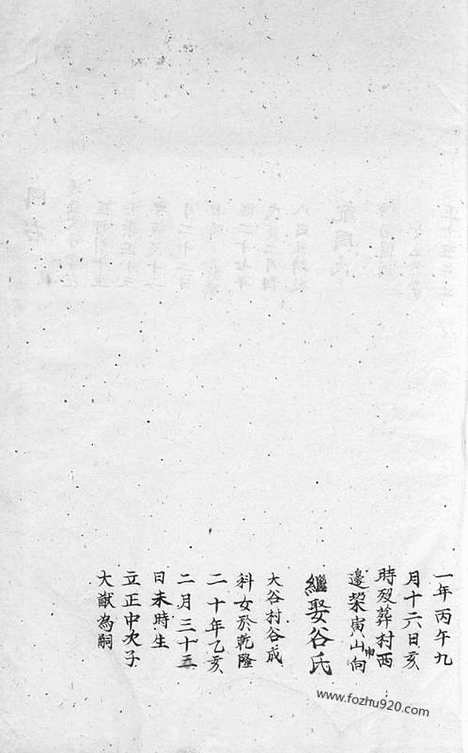 一年丙午九
月十六日亥
時殁葬村西
邊寅山申向
繼娶谷氏
大谷村谷成
科女於乾隆
二十年乙亥
二月三十
日未時生
立正中次子
大猷為嗣
www.fozhu920.com